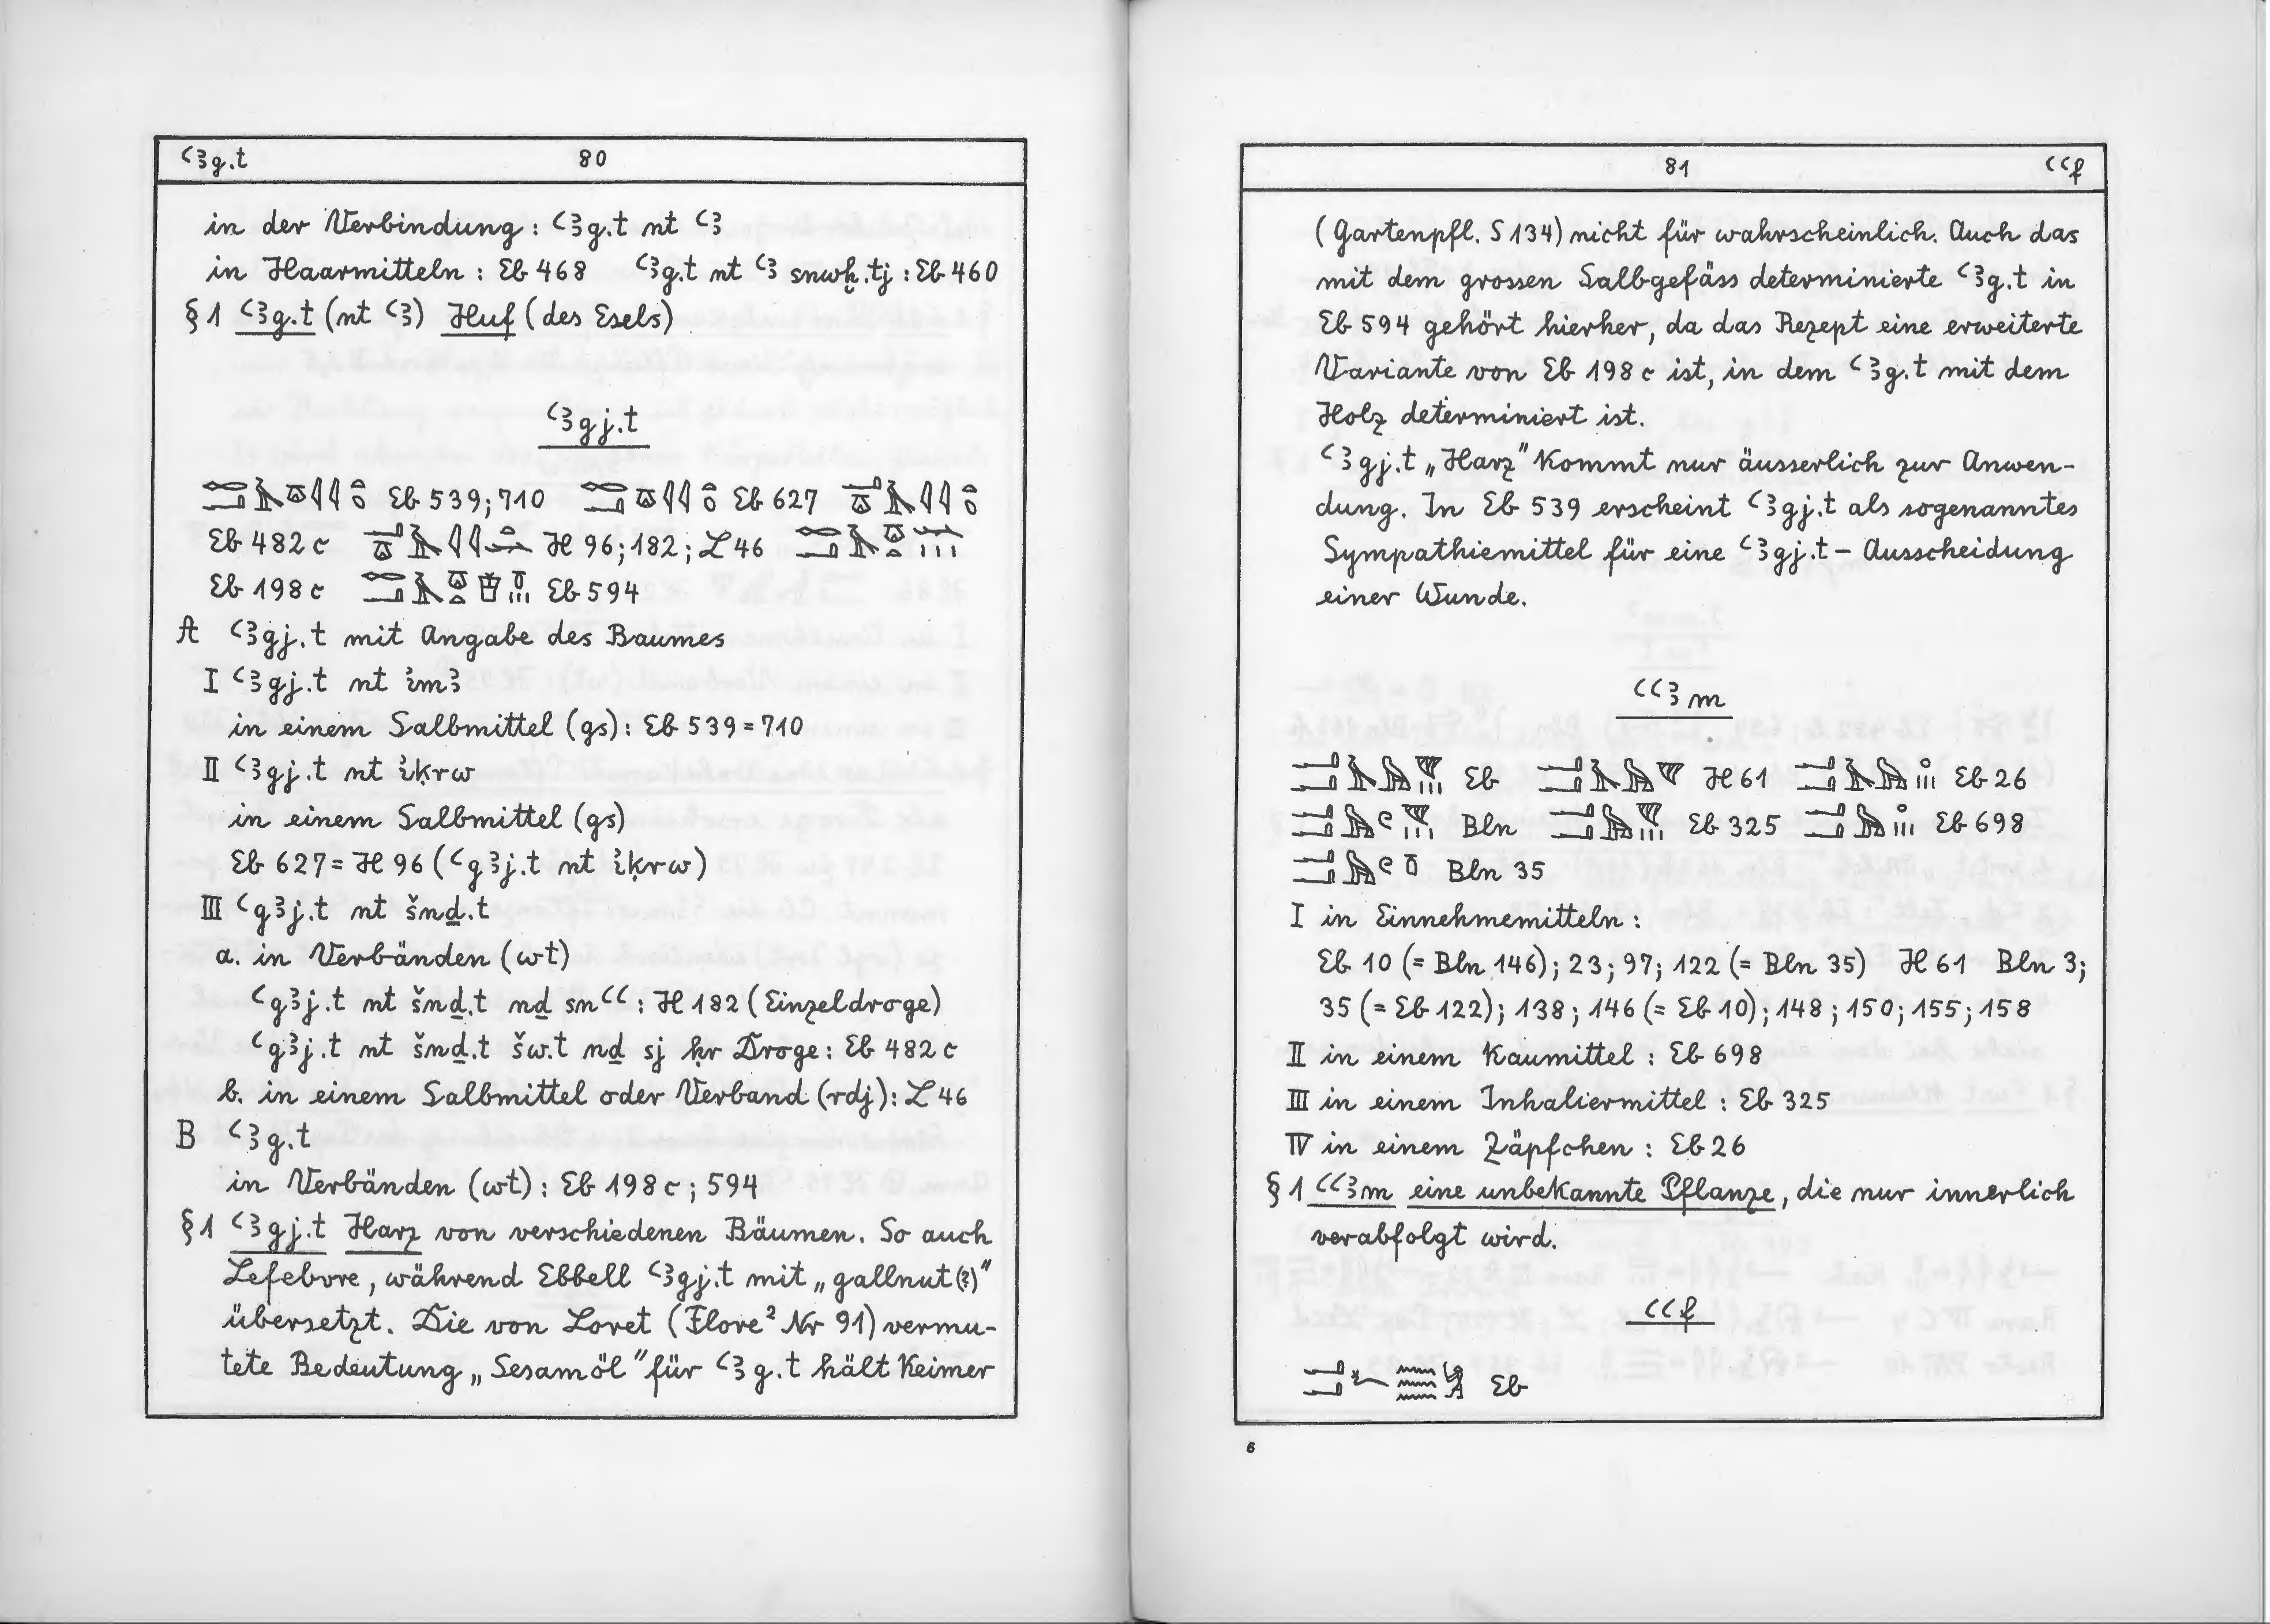 ꜥꜣg.t 80
in der Verbindung : ꜥꜣg.t nt ꜥꜣ
in Haarmitteln : Eb 468 ꜥꜣg.t nt ꜥꜣ snwḫ.tj : Eb 460
§ 1 ꜥꜣg.t (nt ꜥꜣ) Huf (des Esels)
ꜥꜣgj.t
Eb 539; 710 Eb 627
Eb 482 c H 96; 182; L 46
Eb 198 c Eb 594
A ꜥꜣgj.t mit Angabe des Baumes
I ꜥꜣgj.t nt i̓mꜣ
in einem Salbmittel (gs) : Eb 539 = 710
II ꜥꜣgj.t nt i̓ḳrw
in einem Salbmittel (gs)
Eb 627 = H 96 (ꜥgꜣj.t nt i̓ḳrw)
III ꜥgꜣj.t nt šnḏ.t
a. in Verbänden (wt)
ꜥgꜣj.t nt šnḏ.t nḏ snꜥꜥ : H 182 (Einzeldroge)
ꜥgꜣj.t nt šnḏ.t šw.t nḏ sj ḥr Droge : Eb 482 c
b. in einem Salbmittel oder Verband (rdj) : L 46
B ꜥꜣg.t
in Verbänden (wt) : Eb 198 c ; 594
§ 1 ꜥꜣgj.t Harz von verschiedenen Bäumen. So auch
Lefebvre, während Ebbell ꜥꜣgj.t mit „gallnut (?)"
übersetzt. Die von Loret (Flore² Nr 91) vermu-
tete Bedeutung „Sesamöl" für ꜥꜣg.t hält Keimer
81 ꜥꜥf
(Gartenpfl. S 134) nicht für wahrscheinlich. Auch das
mit dem grossen Salbgefäss determinierte ꜥꜣg.t in
Eb 594 gehört hierher, da das Rezept eine erweiterte
Variante von Eb 198 c ist, in dem ꜥꜣg.t mit dem
Holz determiniert ist.
ꜥꜣgj.t „Harz" kommt nur äusserlich zur Anwen-
dung. In Eb 539 erscheint ꜥꜣgj.t als sogenanntes
Sympathiemittel für eine ꜥꜣgj.t - Ausscheidung
einer Wunde.
ꜥꜥꜣm
Eb H 61 Eb 26
Bln Eb 325 Eb 698
Bln 35
I in Einnehmemitteln :
Eb 10 (= Bln 146); 23; 97; 122 (= Bln 35) H 61 Bln 3;
35 (= Eb 122); 138; 146 (= Eb 10); 148; 150; 155; 158
II in einem Kaumittel : Eb 698
III in einem Inhaliermittel : Eb 325
IV in einem Zäpfchen : Eb 26
§ 1 ꜥꜥꜣm eine unbekannte Pflanze, die nur innerlich
verabfolgt wird.
ꜥꜥf
Eb
6